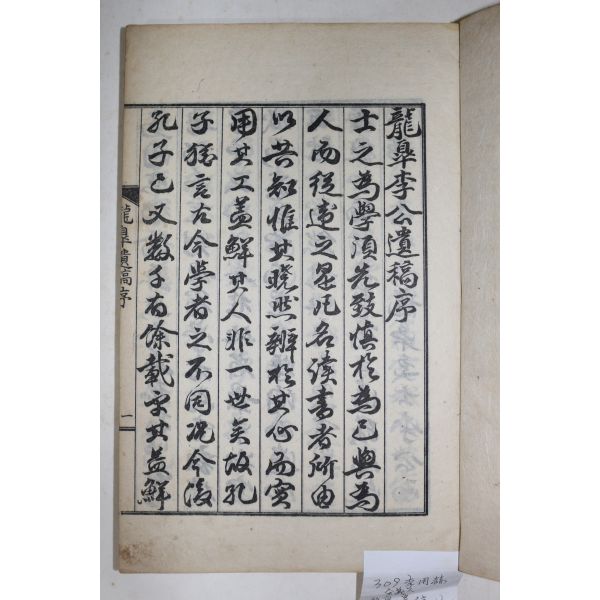 龍皐李公遺稿序
士之為學須先致慎於為己與為
人而從違之是凡名讀書者所由
以共知惟其曉然辨於其心而實
用其工盖鮮其人非一世矣故孔
子猶言古今學者之不同况今後
孔子已又數千有餘載宜其益鮮
龍皐遺稿序
一
309 李用